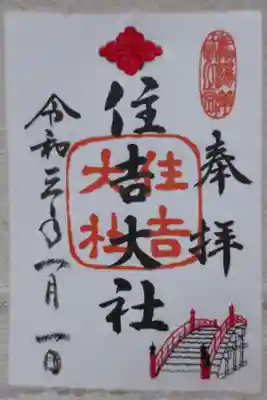 奉拝
住吉大社
住吉
大社
令和三年一月一日